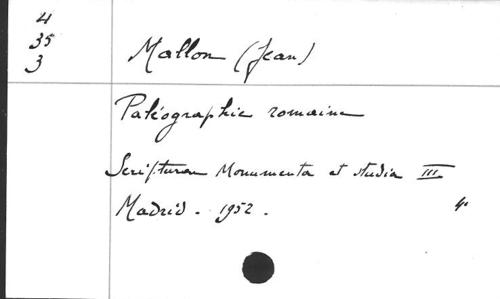 4
35
3
Mallon (Jean)
Paléographie romaine
Scripturae Monumenta et studia III
Madrid - 1952. 4°